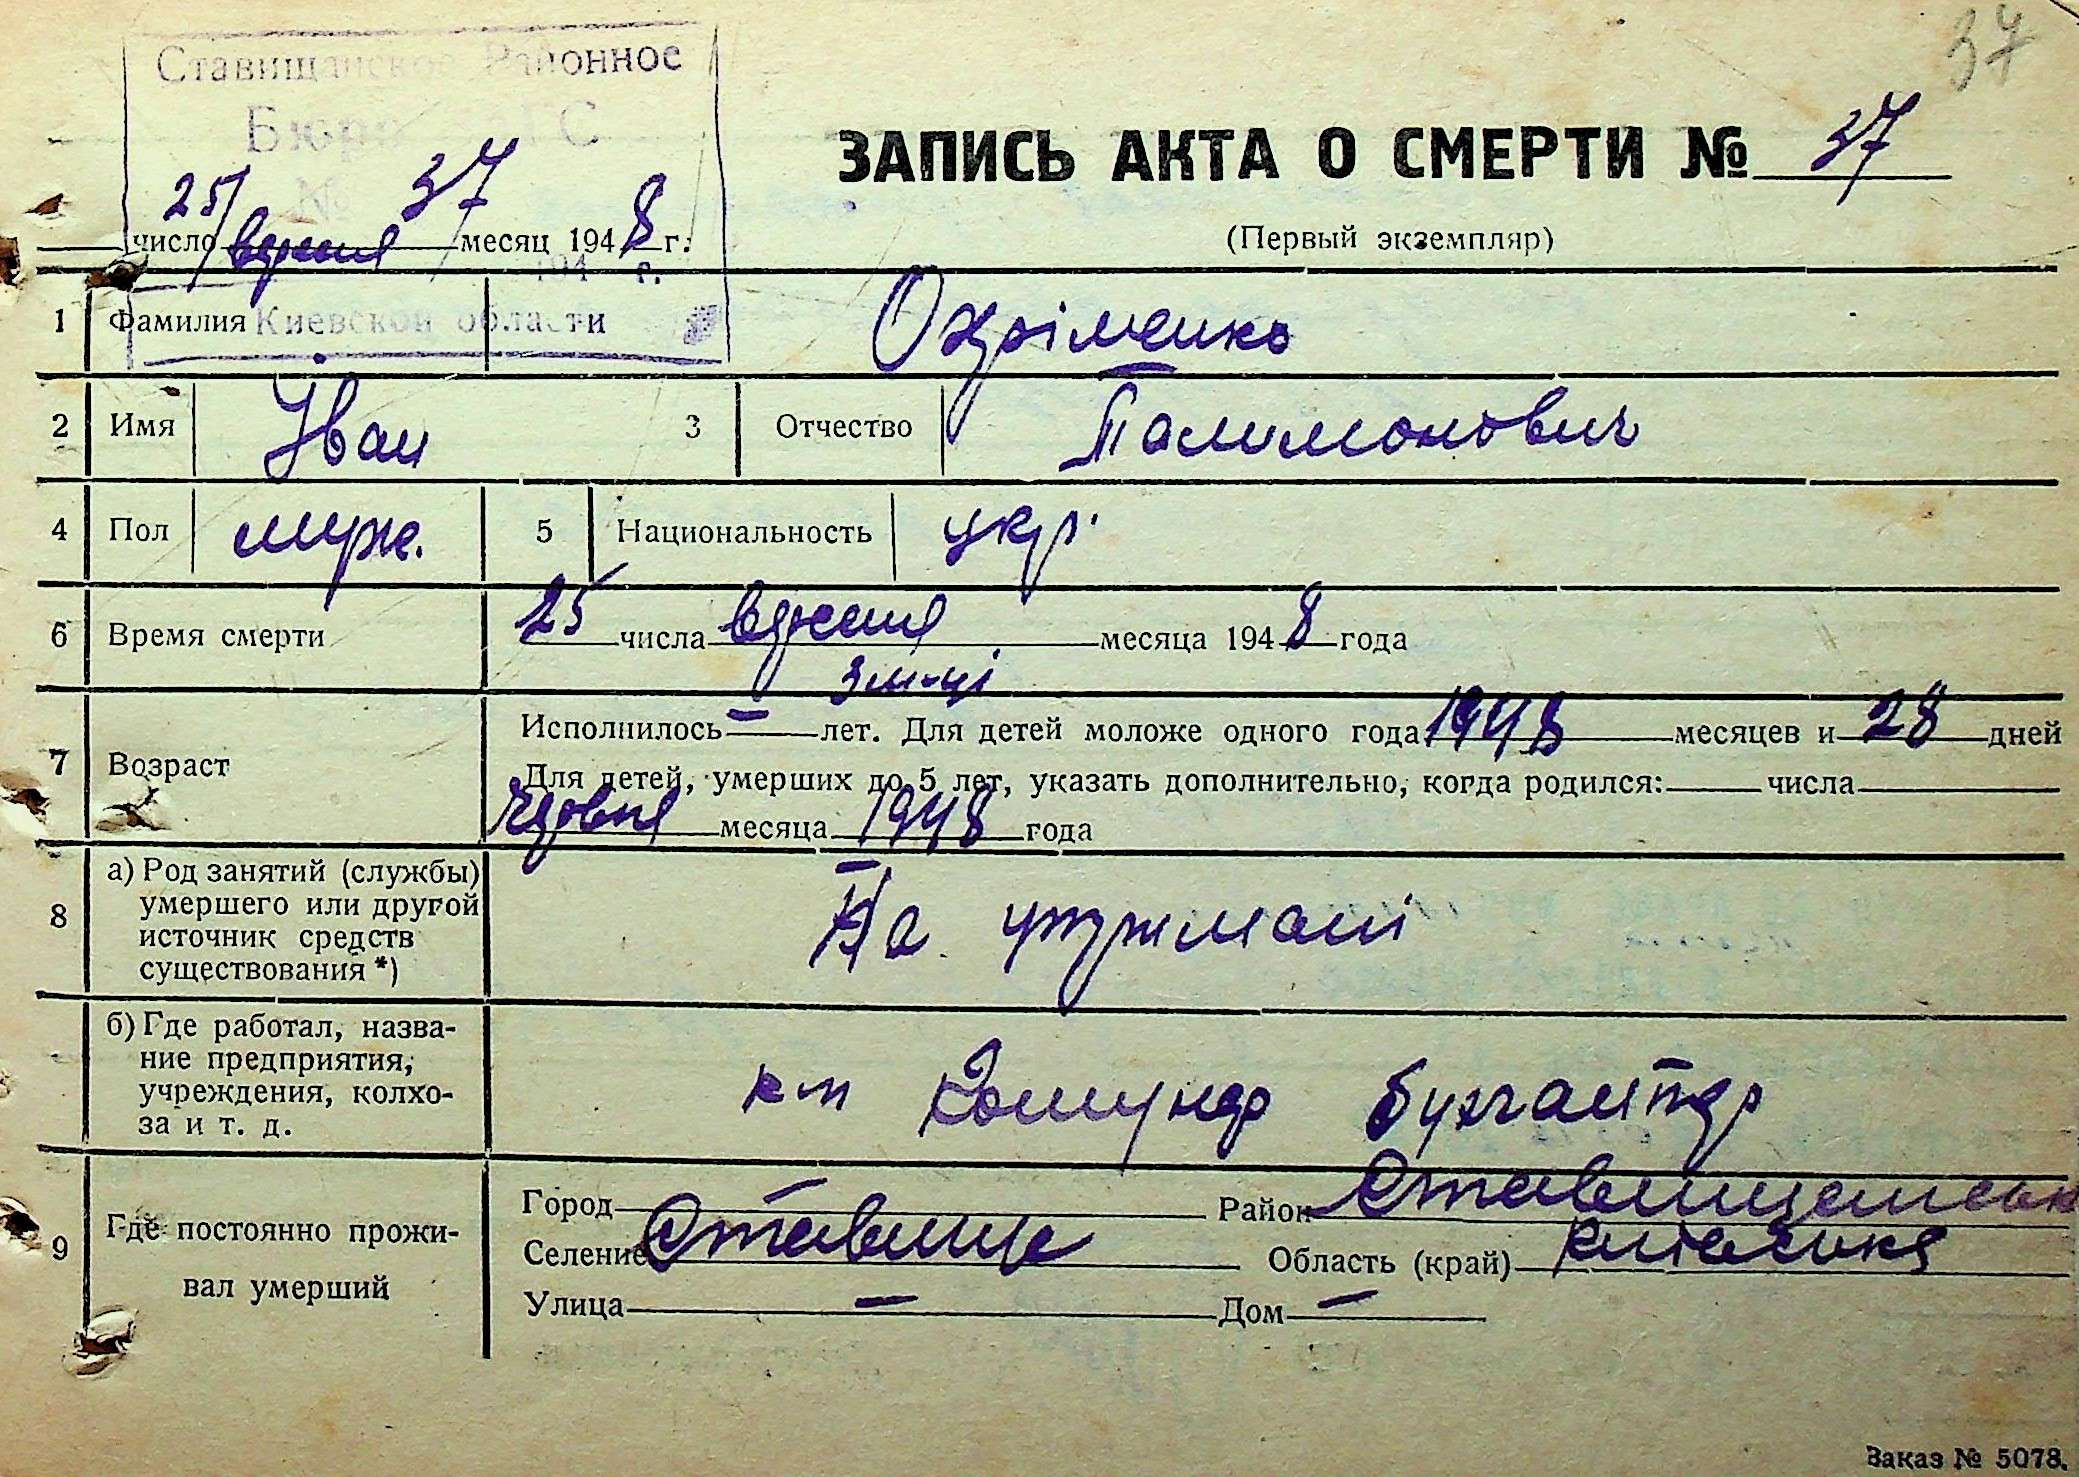 37
Ставищанское Районное
Бюро ГС
№ 37
ЗАПИСЬ АКТА О СМЕРТИ № 37
(Первый экземпляр)
25/ число вресня месяц 1948 г.
194 г.
Киевской области
1 Фамилия Охріменко
2 Имя Іван 3 Отчество Палимонович
4 Пол муж. 5 Национальность укр.
6 Время смерти 25 числа вресня месяца 1948 года
3 м-ці
7 Возраст Исполнилось — лет. Для детей моложе одного года 1948 месяцев и 28 дней
Для детей, умерших до 5 лет, указать дополнительно, когда родился: числа
червня месяца 1948 года
8 а) Род занятий (службы)
умершего или другой
источник средств
существования *)
На утрыманi
б) Где работал, назва-
ние предприятия,
учреждения, колхо-
за и т. д.
бухгалтер
9 Где постоянно прожи-
вал умерший
Город Район Ставищенськ
Селение Ставище Область (край) Київська
Улица — Дом —
Заказ № 5078.